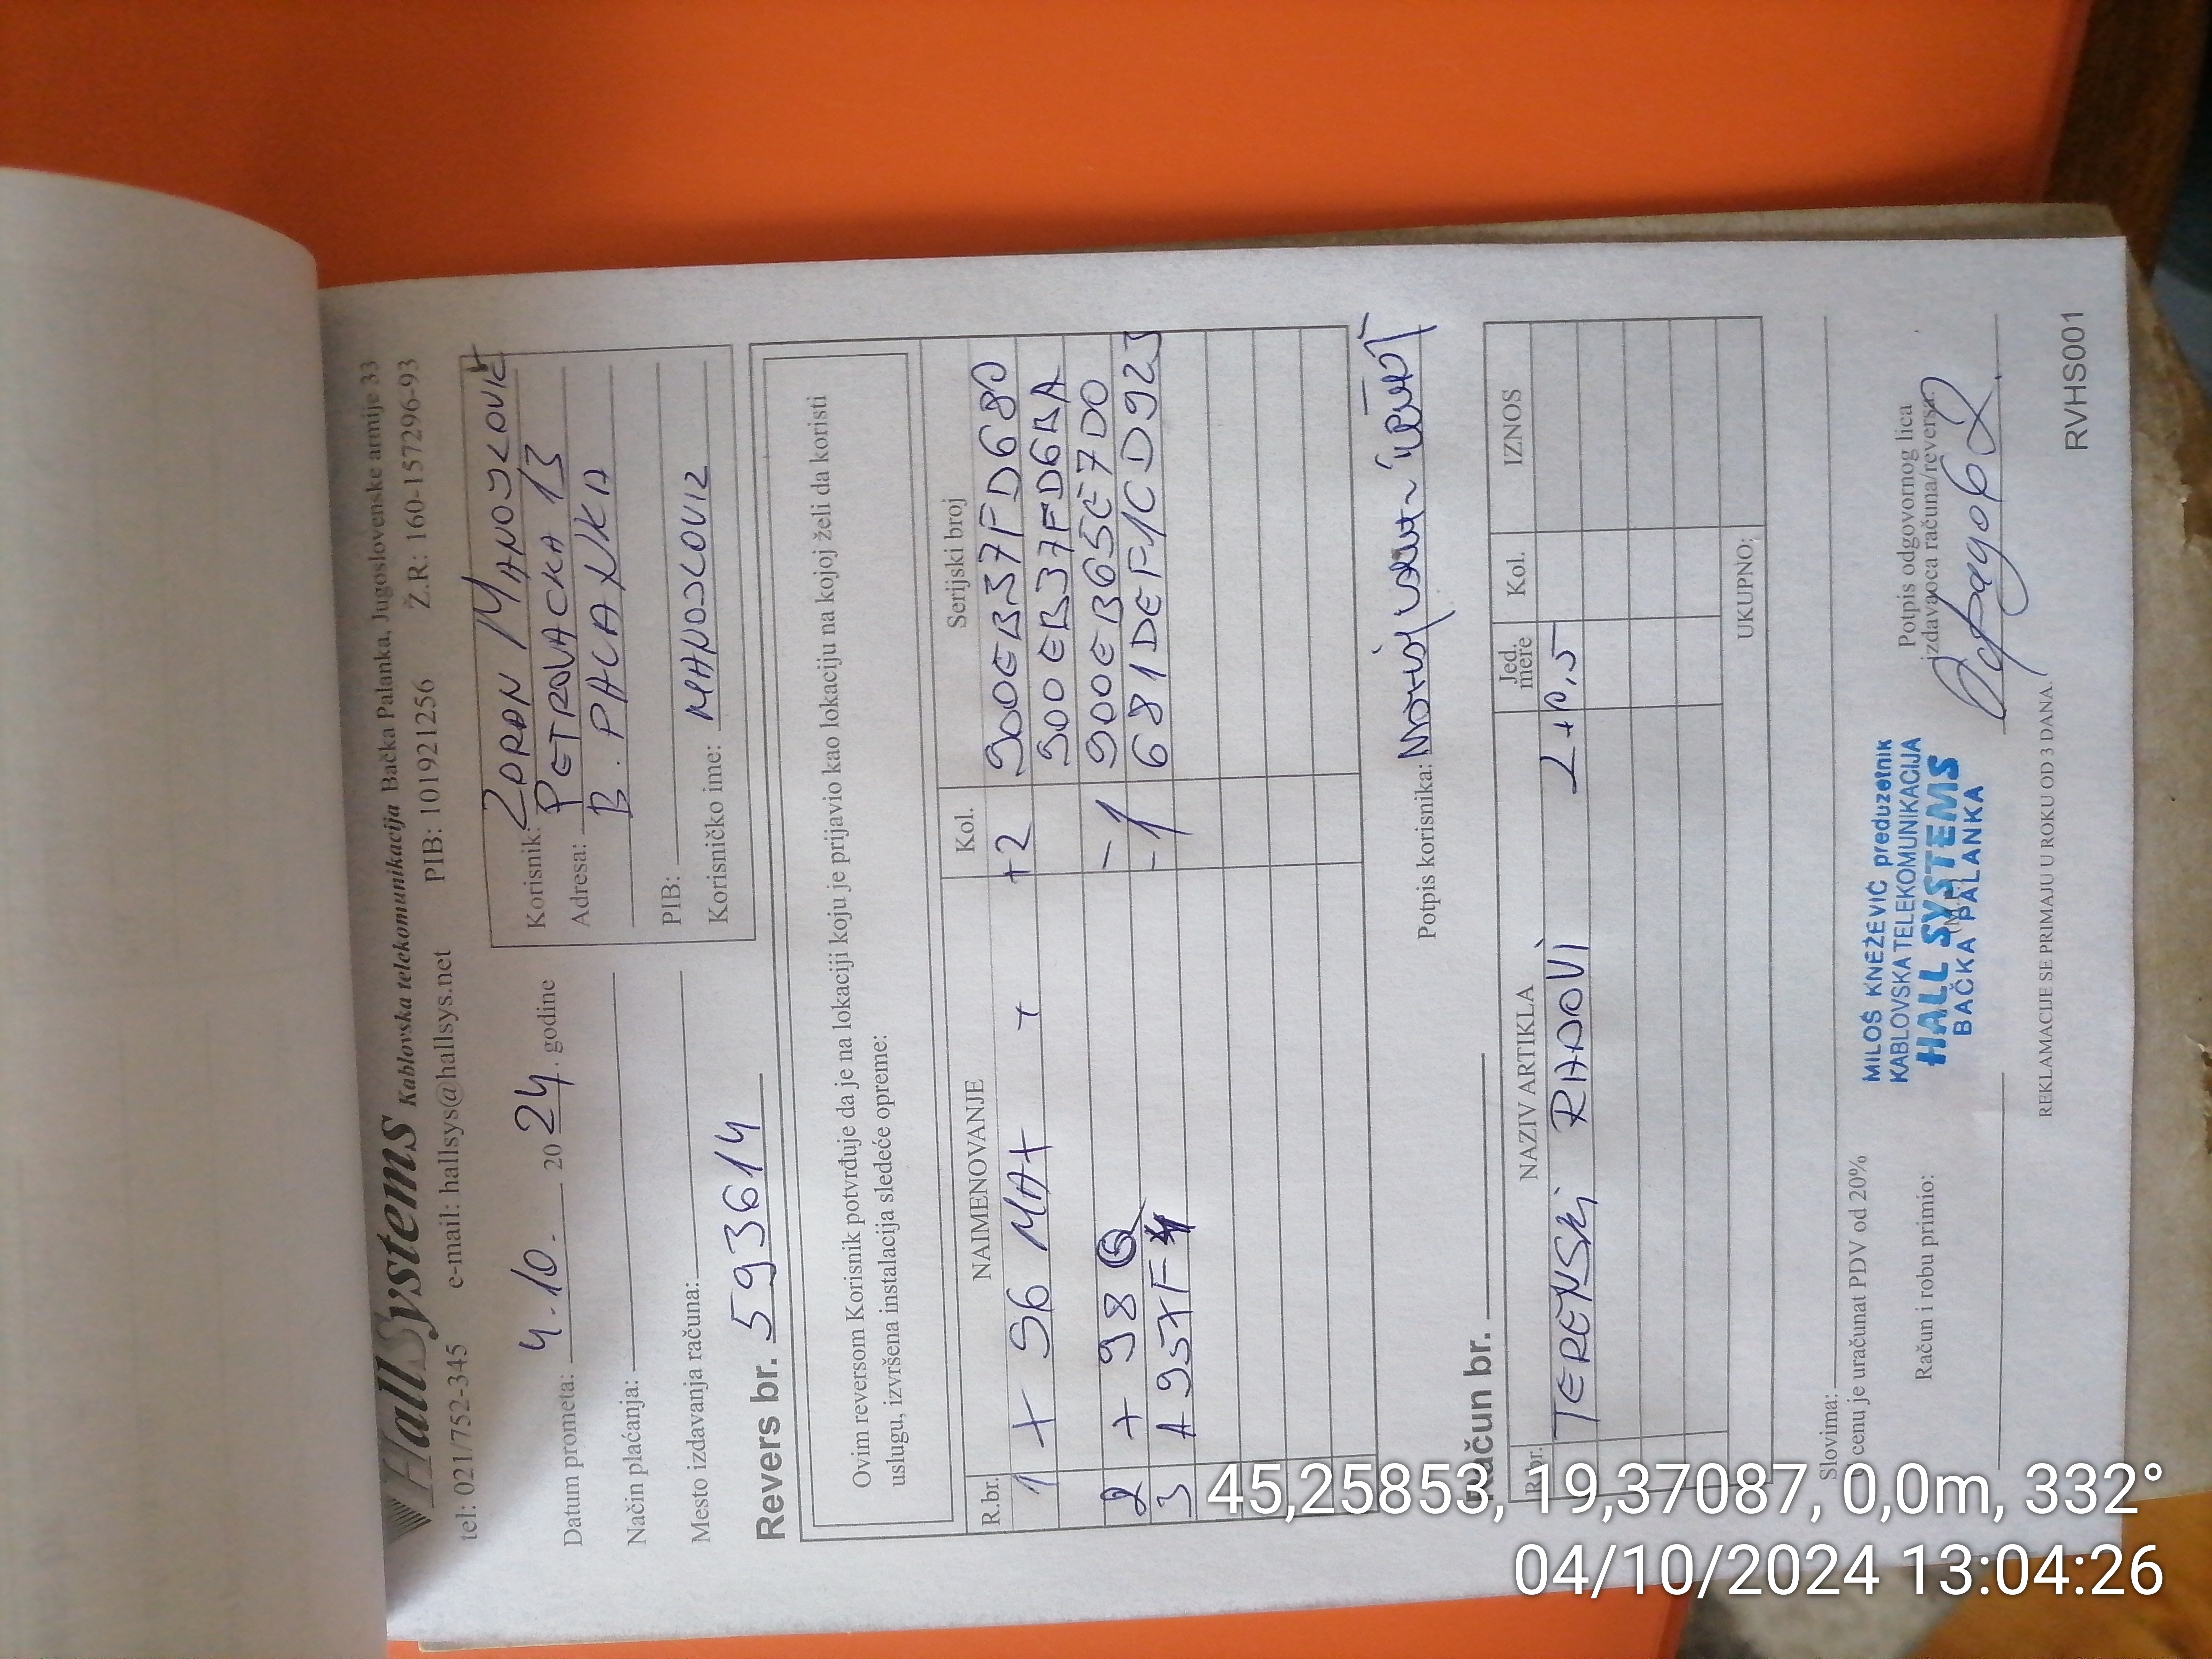 HallSystems Kablovska telekomunikacija Bačka Palanka, Jugoslovenske armije 33
tel: 021/752-345 e-mail: hallsys@hallsys.net PIB: 101921256 Ž.R.: 160-157296-93
Datum prometa: 4.10. 2024. godine
Način plaćanja:
Mesto izdavanja računa:
Korisnik: ZORAN MANOJLOVIĆ
Adresa: PETROVAČKA 13
B. PALANKA
PIB:
Korisničko ime: MANOJLOVIZ
Revers br. 593614
Ovim reversom Korisnik potvrđuje da je na lokaciji koju je prijavio kao lokaciju na kojoj želi da koristi
uslugu, izvršena instalacija sledeće opreme:
R.br. NAIMENOVANJE Kol. Serijski broj
1 X S6 MAX + +2 900EB37FD680
900EB37FD6BA
2 X 98 - 1 900EB65CE7D0
3 A95XF4 - 1 681DEF1CD923
Potpis korisnika:
Račun br.
R.br. NAZIV ARTIKLA Jed. mere Kol. IZNOS
TERENSKI RADOVI
UKUPNO:
Slovima:
U cenu je uračunat PDV od 20%
Račun i robu primio:
MILOŠ KNEŽEVIĆ preduzetnik
KABLOVSKA TELEKOMUNIKACIJA
HALL SYSTEMS
BAČKA PALANKA
Potpis odgovornog lica
izdavaoca računa/reversa:
REKLAMACIJE SE PRIMAJU U ROKU OD 3 DANA.
RVHS001
45,25853, 19,37087, 0,0m, 332°
04/10/2024 13:04:26